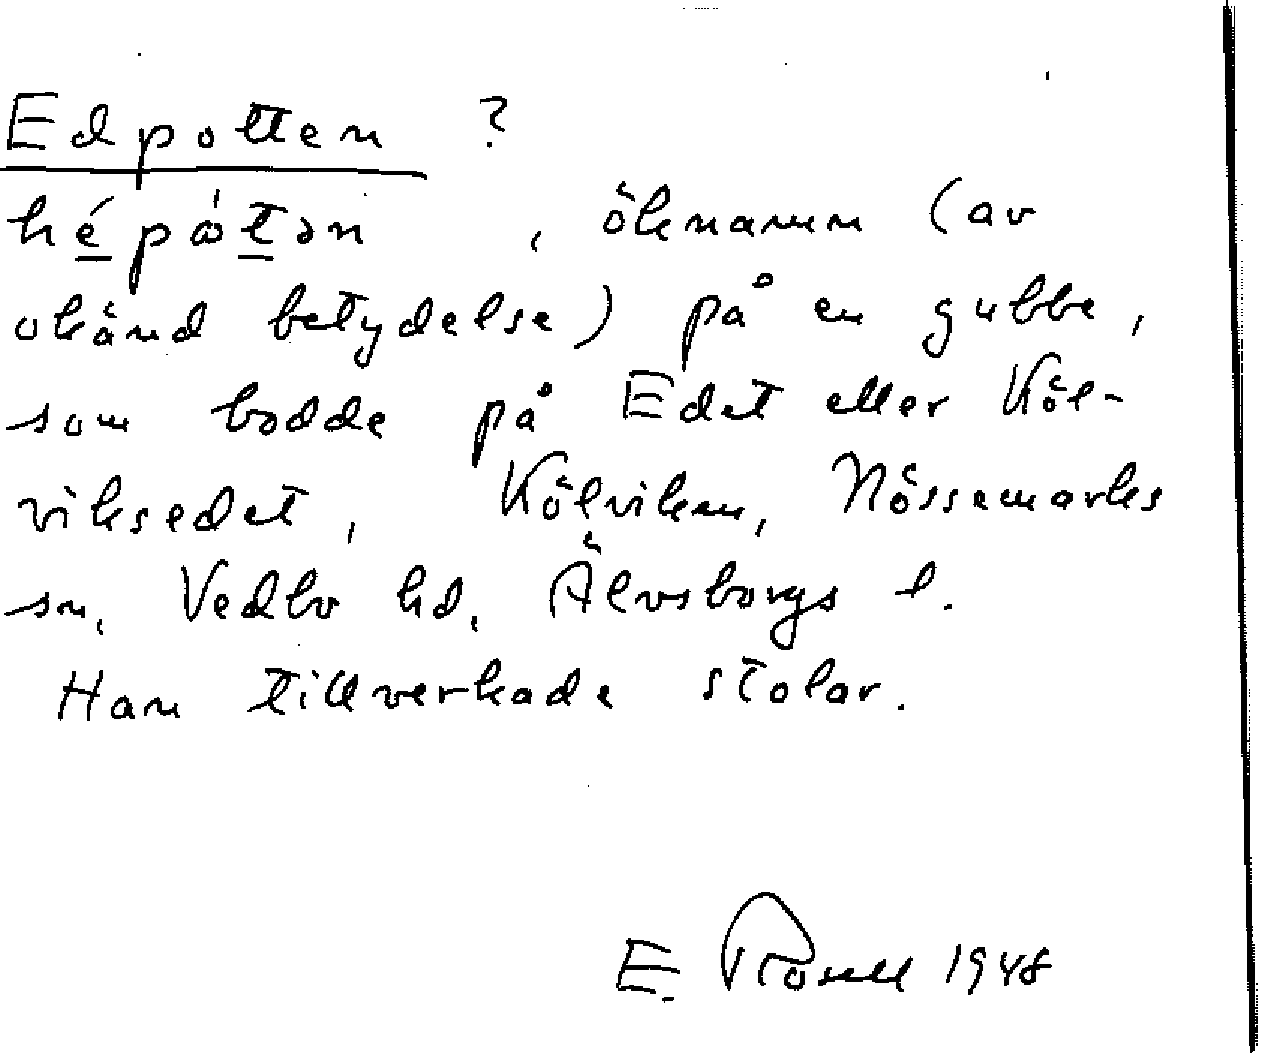 Edpotten ?
hépåtən, öknamn (av
okänd betydelse) på en gubbe,
som bodde på Edet eller Köl-
viksedet, Kölviken, Nössemarks
sn, Vedbo hd, Älvsborgs l.
Han tillverkade stolar.
E. Rosell 1948